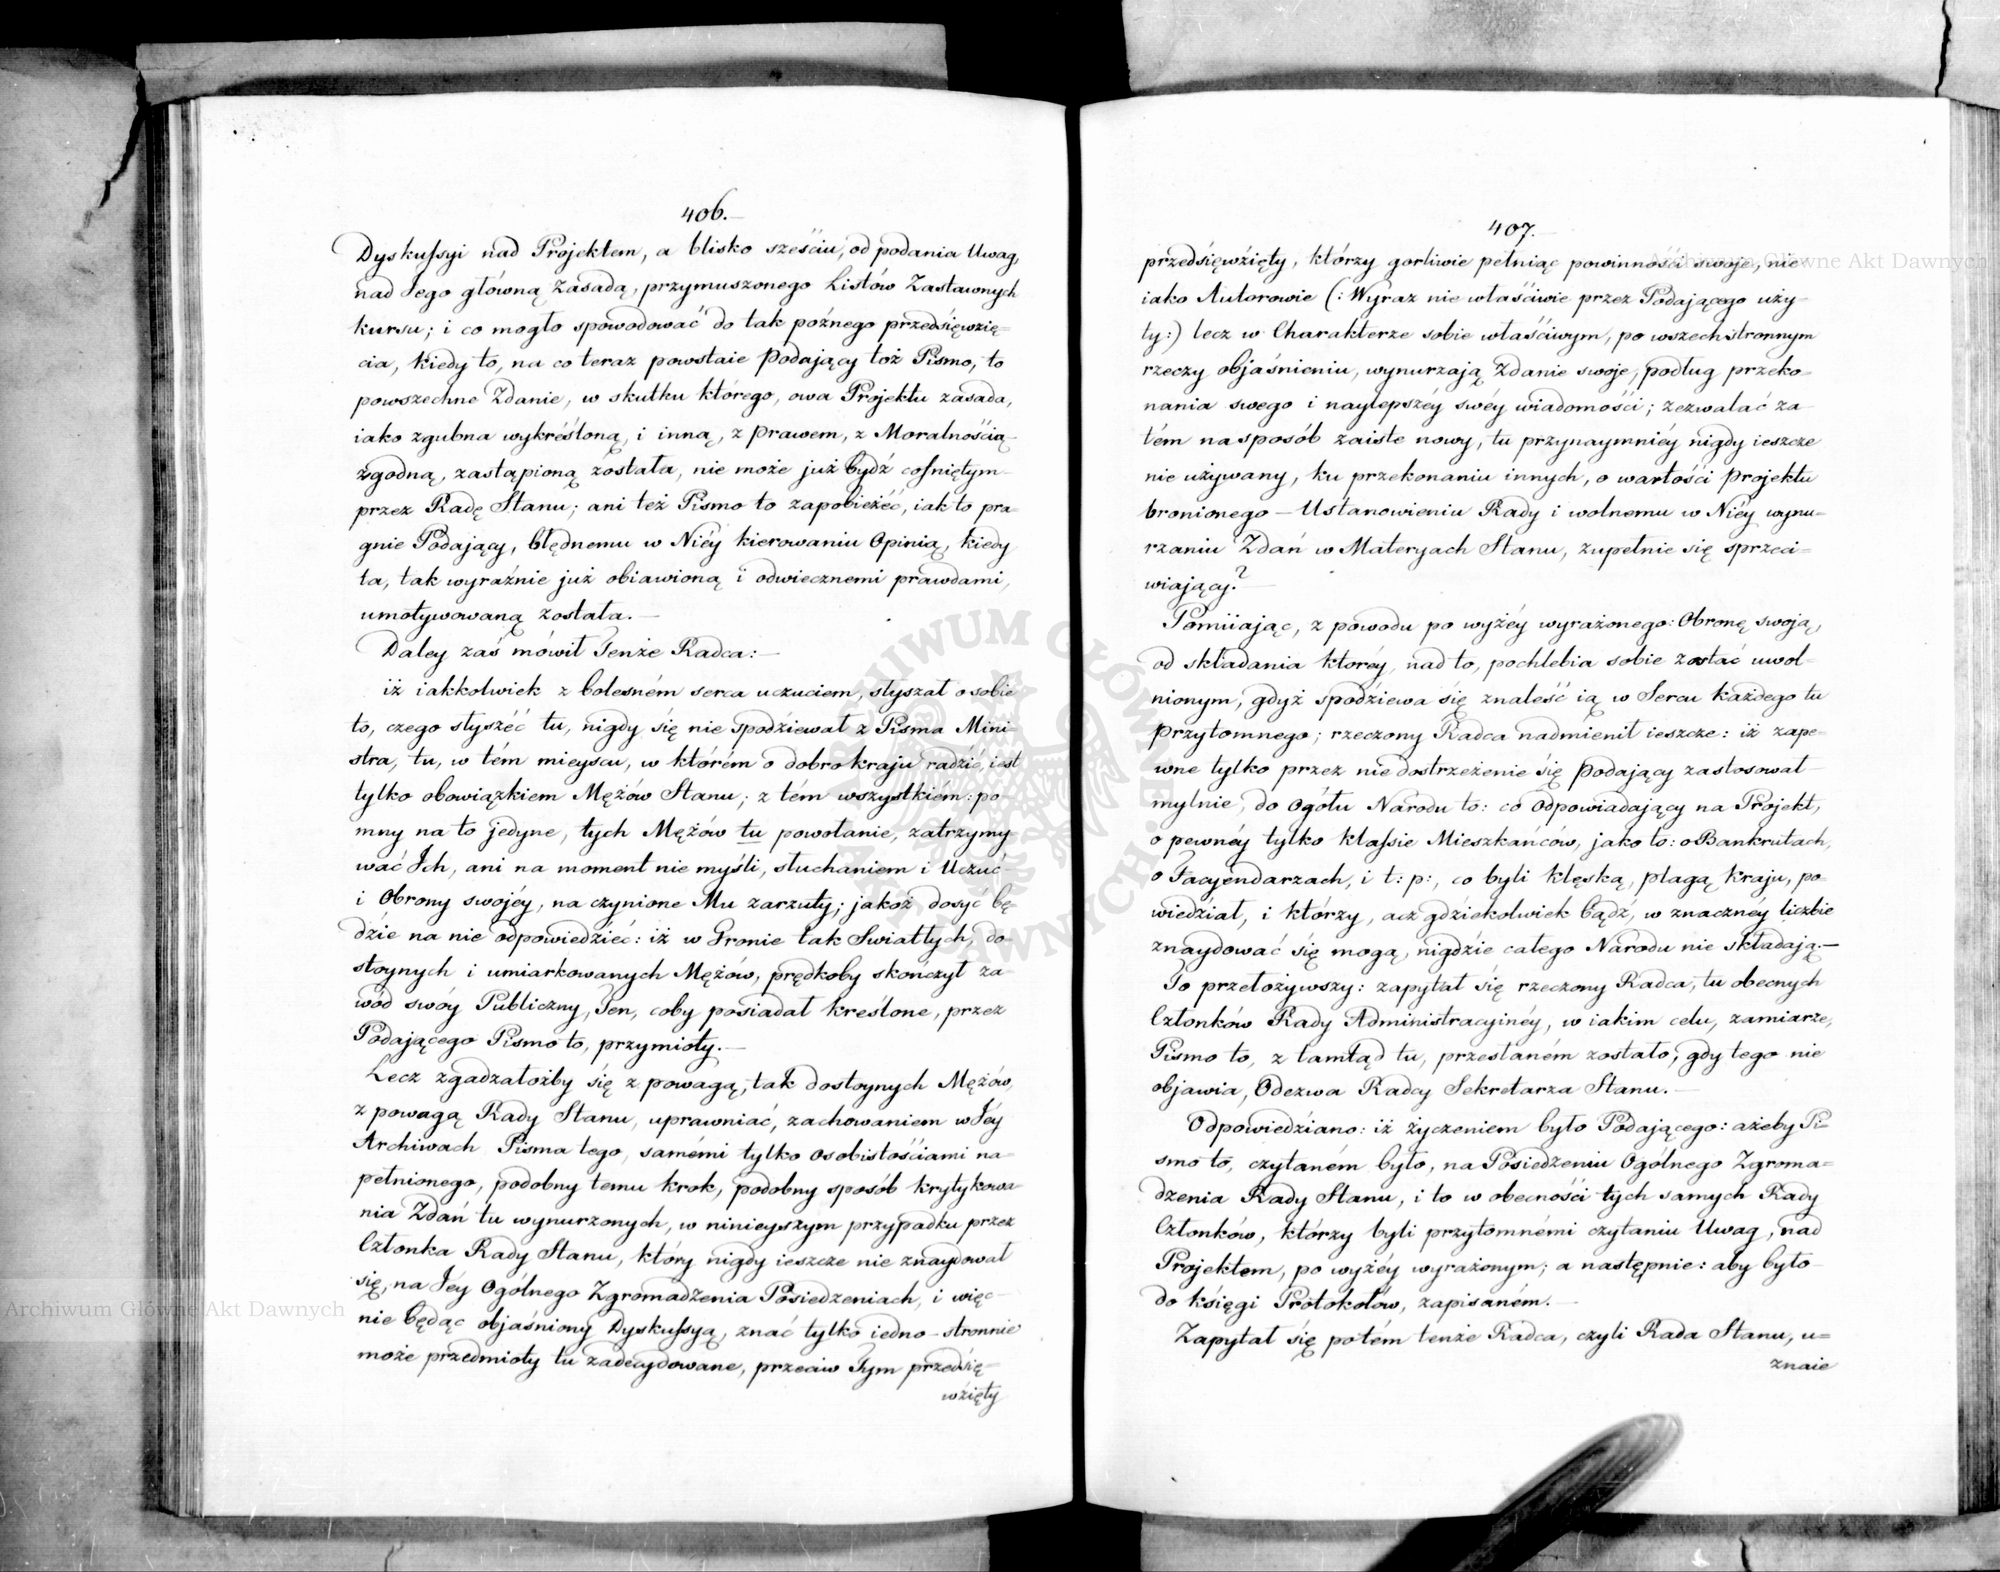 406.
Dyskussyi nad Projektem, a blisko sześciu, od podania Uwag,
nad Jego główną zasadą, przymuszonego Listów Zastawnych
kursu; i co mogło spowodować do tak poźnego przedsięwzię=
cia, kiedy to, na co teraz powstaie Podający toż Pismo, to
powszechne Zdanie, w skutku którego, owa Projektu zasada,
iako zgubna wykréśloną, i inną, z Prawem, z Moralnością
zgodną, zastąpioną została, nie może już bydź cofniętym
przez Radę Stanu; ani też Pismo to zapobieżéć, iak to pra=
gnie Podający, błędnemu w Niéy kierowaniu Opinią, kiedy
ta, tak wyraźnie już obiawioną i odwiecznemi prawdami,
umotywowaną została.—
Daley zaś mówił Tenże Radca:—
iż iakkolwiek z bolesném serca uczuciem, słyszał o sobie
to, czego słyszéć tu, nigdy się nie spodziewał z Pisma Mini=
stra, tu, w tém mieyscu, w którém o dobro kraju radzić, iest
tylko obowiązkiem Mężów Stanu; z tém wszystkiém: po=
mny na to jedyne, tych Mężów tu powołanie, zatrzymy
wać Ich, ani na moment nie myśli, słuchaniem i Uczuć
i Obrony swojéy, na czynione Mu zarzuty; jakoż dosyć bę
dzie na nie odpowiedziéć: iż w Gronie tak Światłych, do=
stoynych i umiarkowanych Mężów, prędkoby skończył za=
wód swóy Publiczny, Ten, coby posiadał kreślone, przez
Podającego Pismo to, przymioty.—
Lecz zgadzałożby się z powagą, tak dostoynych Mężów,
z powagą Rady Stanu, uprawniać, zachowaniem w Jéy
Archiwach Pisma tego, samémi tylko osobistościami na=
pełnionego, podobny temu krok, podobny sposób krytykowa=
nia Zdań tu wynurzonych, w ninieyszym przypadku przez
Członka Rady Stanu, który nigdy ieszcze nie znaydował
się, na Jéy Ogólnego Zgromadzenia Posiedzeniach, i więc—
nie będąc objaśniony Dyskussyą, znać tylko iedno-stronnie
może przedmioty tu zadecydowane, przeciw Tym przedsię=
wzięty
407.
przedsięwzięty, którzy gorliwie pełniąc powinności swoje, nie
iako Autorowie (: Wyraz nie właściwie przez Podającego uży=
ty:) lecz w Charakterze sobie właściwym, po wszechstronnym
rzeczy objaśnieniu, wynurzają Zdanie swoje, podług przeko=
nania swego i naylepszéy swéy wiadomości; zezwalać za=
tém na sposób zaiste nowy, tu przynaymniéy nigdy ieszcze
nie używany, ku przekonaniu innych, o wartości Projektu
bronionego — Ustanowieniu Rady i wolnemu w Niéy wynu=
rzaniu Zdań w Materyach Stanu, zupełnie się sprzeci=
wiający?—
Pomiiając, z powodu po wyżéy wyrażonego: Obronę swoją,
od składania któréy, nad to, pochlebia sobie zostać uwol=
nionym, gdyż spodziewa się znaleść ią w Sercu każdego tu
przytomnego; rzeczony Radca nadmienił ieszcze: iż zape=
wne tylko przez niedostrzeżenie się Podający zastosował
mylnie, do Ogółu Narodu to: co Odpowiadający na Projekt,
o pewnéy tylko klassie Mieszkańców, jako to: o Bankrutach,
o Facyendarzach, i t: p:, co byli klęską, plagą kraju, po=
wiedział, i którzy, acz gdziekolwiek bądź, w znacznéy liczbie
znaydować się mogą, nigdzie całego Narodu nie składają.—
To przełożywszy: zapytał się rzeczony Radca, tu obecnych
Członków Rady Administracyinéy, w iakim celu, zamiarze,
Pismo to, z tamtąd tu, przesłaném zostało; gdy tego nie
objawia, Odezwa Radcy Sekretarza Stanu.—
Odpowiedziano: iż życzeniem było Podającego: ażeby Pi=
smo to, czytaném było, na Posiedzeniu Ogólnego Zgroma=
dzenia Rady Stanu, i to w obecności tych samych Rady
Członków, którzy byli przytomnémi czytaniu Uwag, nad
Projektem, po wyżéy wyrażonym; a następnie: aby było—
do księgi Protokołów, zapisaném.—
Zapytał się potém tenże Radca, czyli Rada Stanu, u=
znaie
Archiwum Główne Akt Dawnych
Archiwum Główne Akt Dawnych
ARCHIWUM GŁÓWNE AKT DAWNYCH